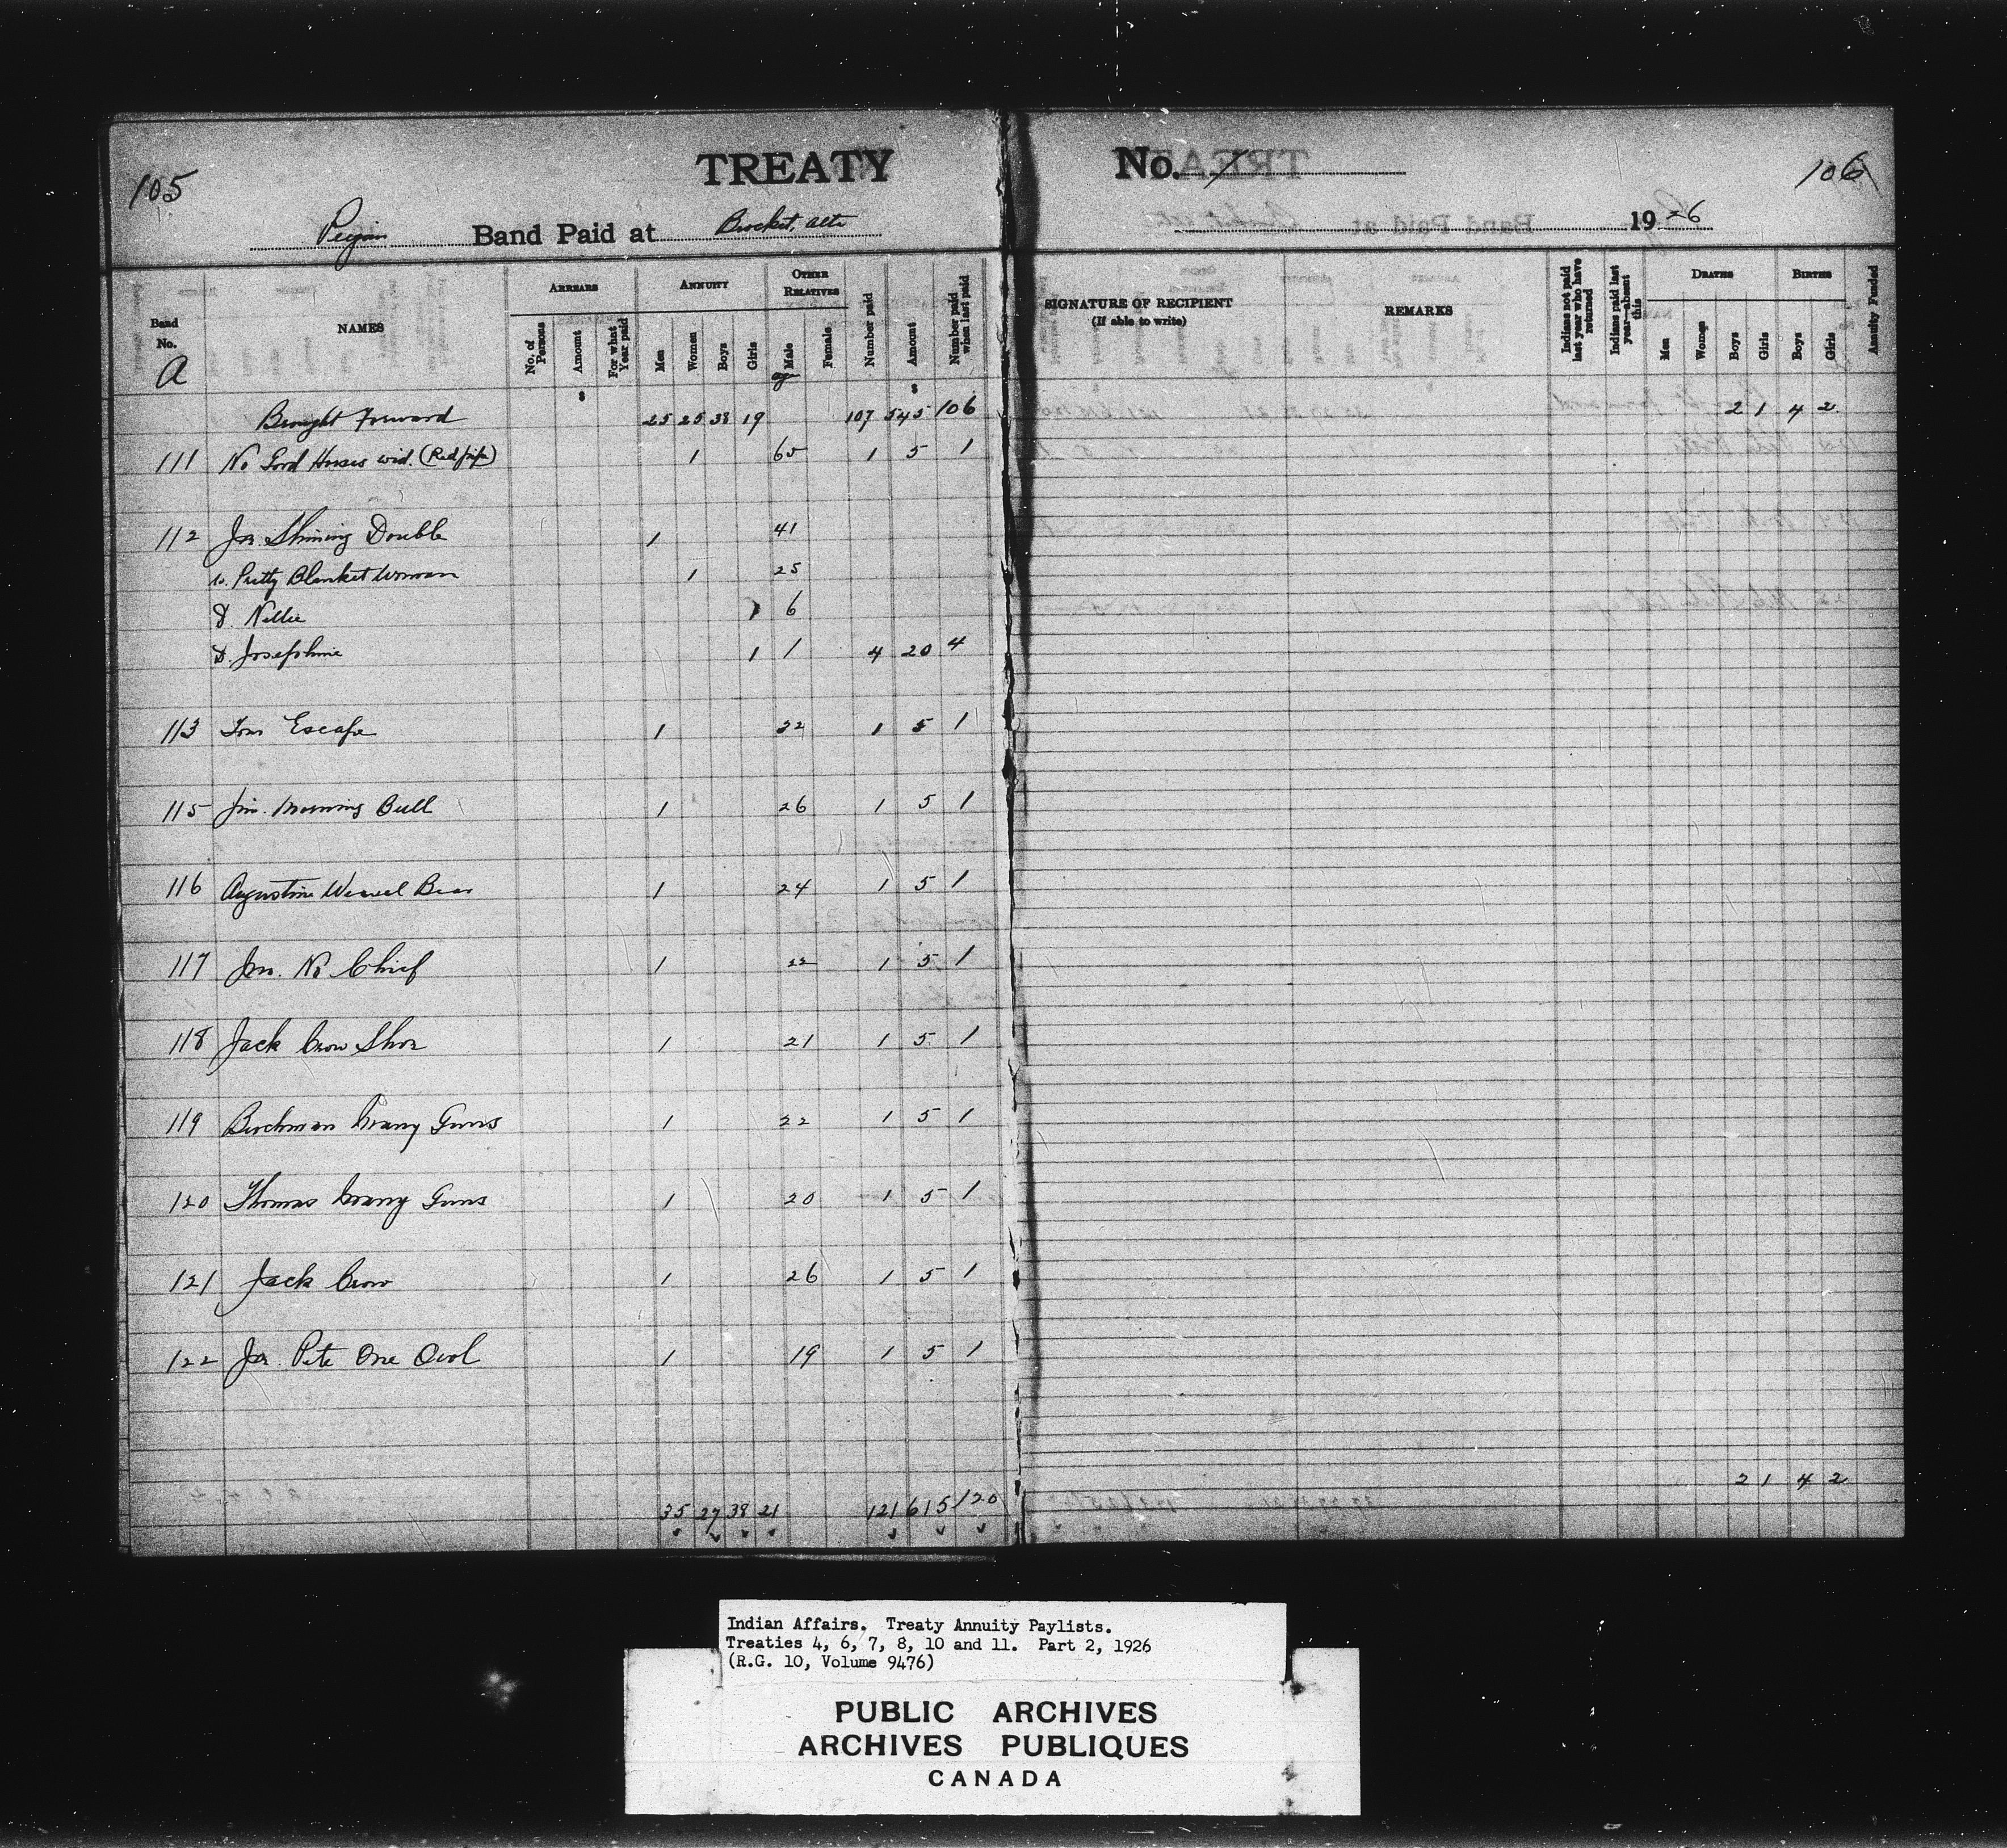 105
TREATY
No. 7
106
Peigan Band Paid at Brocket, Alta
19 26
Band No.
NAMES
ARREARS
ANNUITY
OTHER RELATIVES
No. of Persons
Amount
For what Year paid
Men
Women
Boys
Girls
Male
Female
Number paid
Amount
Number paid when last paid
SIGNATURE OF RECIPIENT
(If able to write)
REMARKS
Indians not paid last year who have returned
Indians paid last year—absent this
DEATHS
Men
Women
Boys
Girls
BIRTHS
Boys
Girls
Annuity Funded
A
age
$ $
Brought Forward 25 25 38 19 107 545 106 2 1 4 2
111 No Good Horses wid. (Red pipe) 1 65 1 5 1
112 Jos. Shining Double 1 41
w. Pretty Blanket Woman 1 25
D. Nellie 1 6
D. Josephine 1 1 4 20 4
113 Tom Escape 1 22 1 5 1
115 Jim Morning Bull 1 26 1 5 1
116 Augustine Weasel Bear 1 24 1 5 1
117 Jno. No Chief 1 22 1 5 1
118 Jack Crow Shoe 1 21 1 5 1
119 Berchman Many Guns 1 22 1 5 1
120 Thomas Many Guns 1 20 1 5 1
121 Jack Crow 1 26 1 5 1
122 Jos. Pete One Owl 1 19 1 5 1
2 1 4 2
35 27 38 21 121 615 120
Indian Affairs. Treaty Annuity Paylists.
Treaties 4, 6, 7, 8, 10 and 11. Part 2, 1926
(R.G. 10, Volume 9476)
PUBLIC ARCHIVES
ARCHIVES PUBLIQUES
CANADA